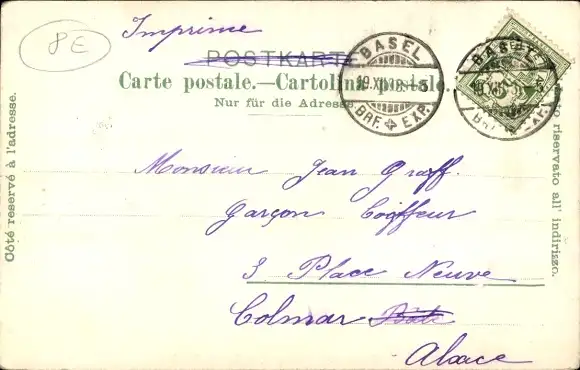 8E
Imprimé
POSTKARTE
Carte postale.—Cartolina postale.
Nur für die Adresse
BASEL
BRF. EXP.
BASEL
BRF. EXP.
Côté reservé à l'adresse.
riservato all' indirizzo.
Monsieur Jean Graff.
Garçon Coiffeur
3 Place Neuve
Colmar
Alsace